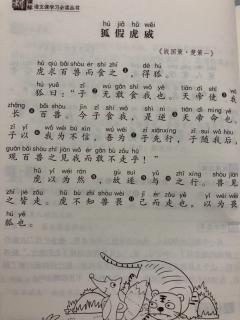 语文课学习必读丛书
hú jiǎ hǔ wēi
狐假虎威
《战国策·楚策一》
hǔ qiú bǎi shòu ér shí zhī dé hú
虎求百兽而食之，得狐。
hú yuē zǐ wú gǎn shí wǒ yě tiān dì shǐ wǒ
狐曰：“子无敢食我也。天帝使我
zhǎng bǎi shòu jīn zǐ shí wǒ shì nì tiān dì mìng yě
长百兽。今子食我，是逆天帝命也。
zǐ yǐ wǒ wéi bú xìn wú wèi zǐ xiān xíng zǐ suí wǒ hòu
子以我为不信，吾为子先行，子随我后，
guān bǎi shòu zhī jiàn wǒ ér gǎn bù zǒu hū
观百兽之见我而敢不走乎！”
hǔ yǐ wéi rán gù suì yǔ zhī xíng shòu jiàn
虎以为然，故遂与之行。兽见
zhī jiē zǒu hǔ bù zhī shòu wèi jǐ ér zǒu yě yǐ wéi wèi
之皆走。虎不知兽畏己而走也，以为畏
hú yě
狐也。